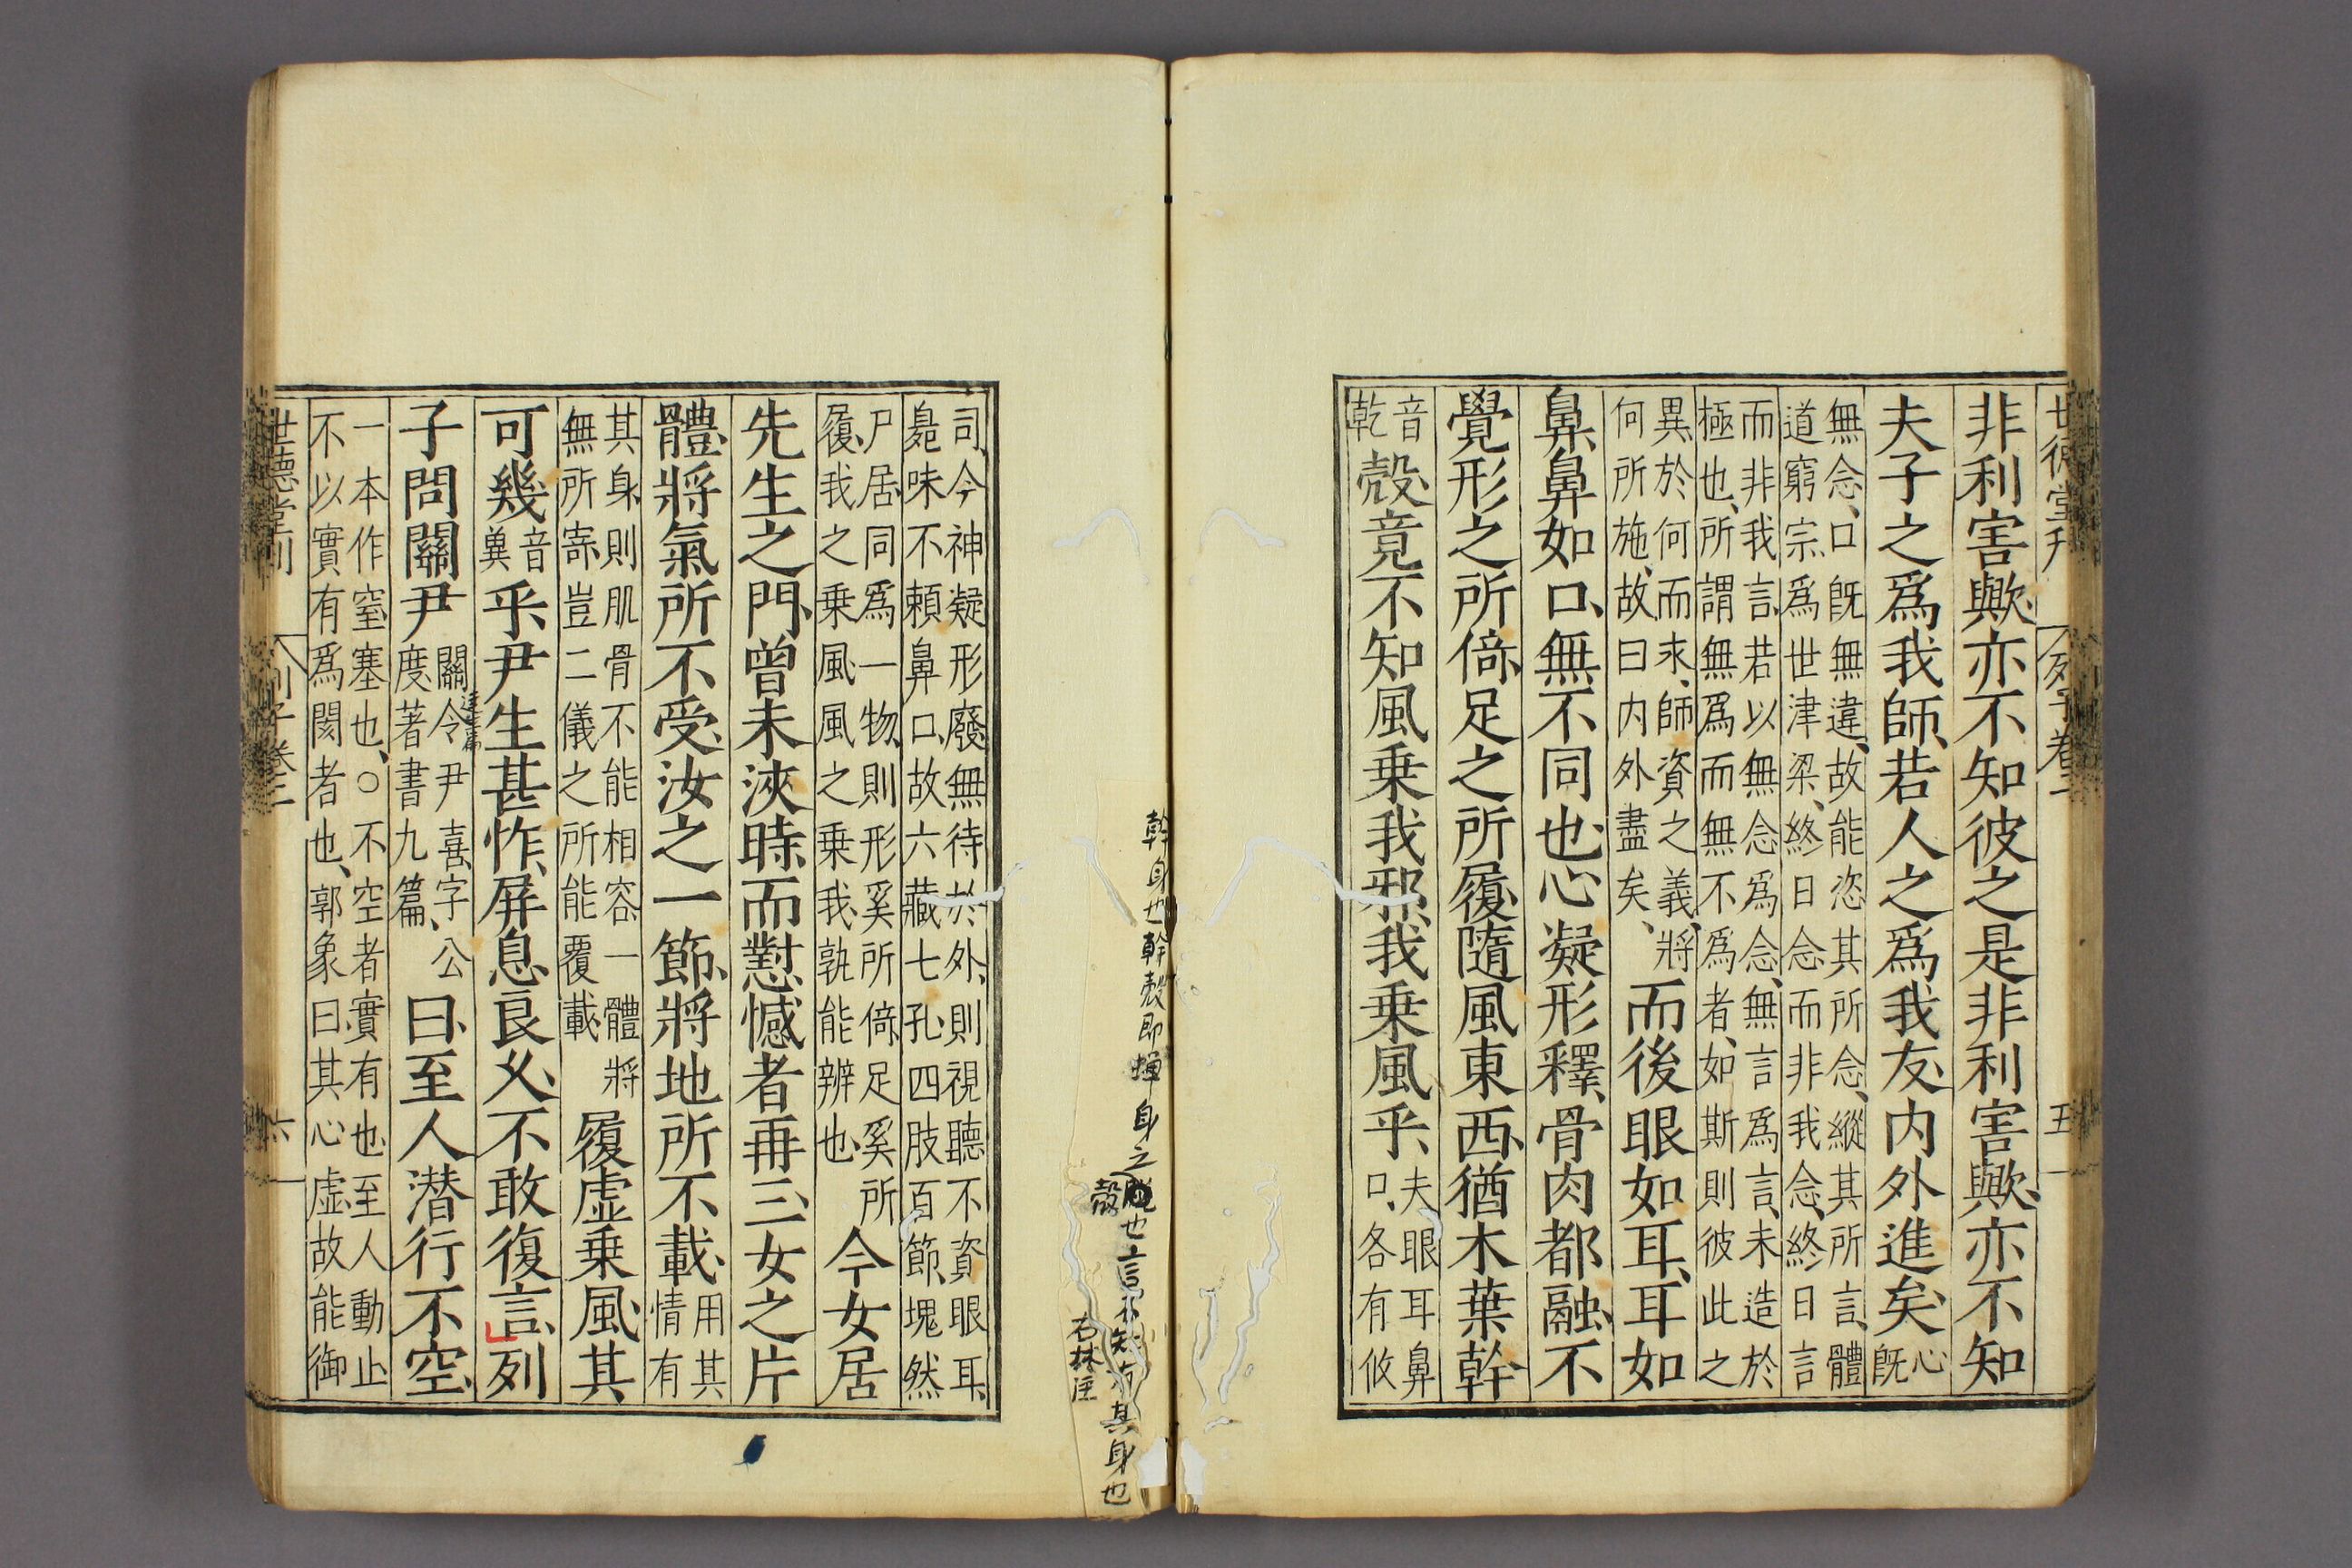 世德堂刊 列子卷二 五
非利害歟亦不知彼之是非利害歟亦不知
夫子之爲我師若人之爲我友内外進矣心既
無念口既無違故能恣其所念縱其所言體
道窮宗爲世津梁終日念而非我念終日言
而非我言若以無念爲念無言爲言未造於
極也所謂無爲而無不爲者如斯則彼此之
異於何而求師資之義將
何所施故曰内外盡矣
而後眼如耳耳如
鼻鼻如口無不同也心凝形釋骨肉都融不
覺形之所倚足之所履隨風東西猶木葉幹
音
乾
殼竟不知風乗我邪我乗風乎
夫眼耳鼻
口各有攸
幹身也幹殼即蟬身之殼也言不知有其身也
右林注
司今神凝形廢無待於外則視聽不資眼耳
臭味不賴鼻口故六藏七孔四肢百節塊然
尸居同爲一物則形奚所倚足奚所
履我之乗風風之乗我孰能辨也
今女居
先生之門曾未浹時而懟憾者再三女之片
體將氣所不受汝之一節將地所不載
用其
情有
其身則肌骨不能相容一體將
無所寄豈二儀之所能覆載
履虛乗風其
可幾
音
兾
乎尹生甚怍屏息良乆不敢復言列
子問關尹
關令尹喜字公
度著書九篇
達生篇
曰至人潛行不空
一本作窒塞也○不空者實有也至人動止
不以實有爲閡者也郭象曰其心虛故能御
世德堂刊 列子卷二 六